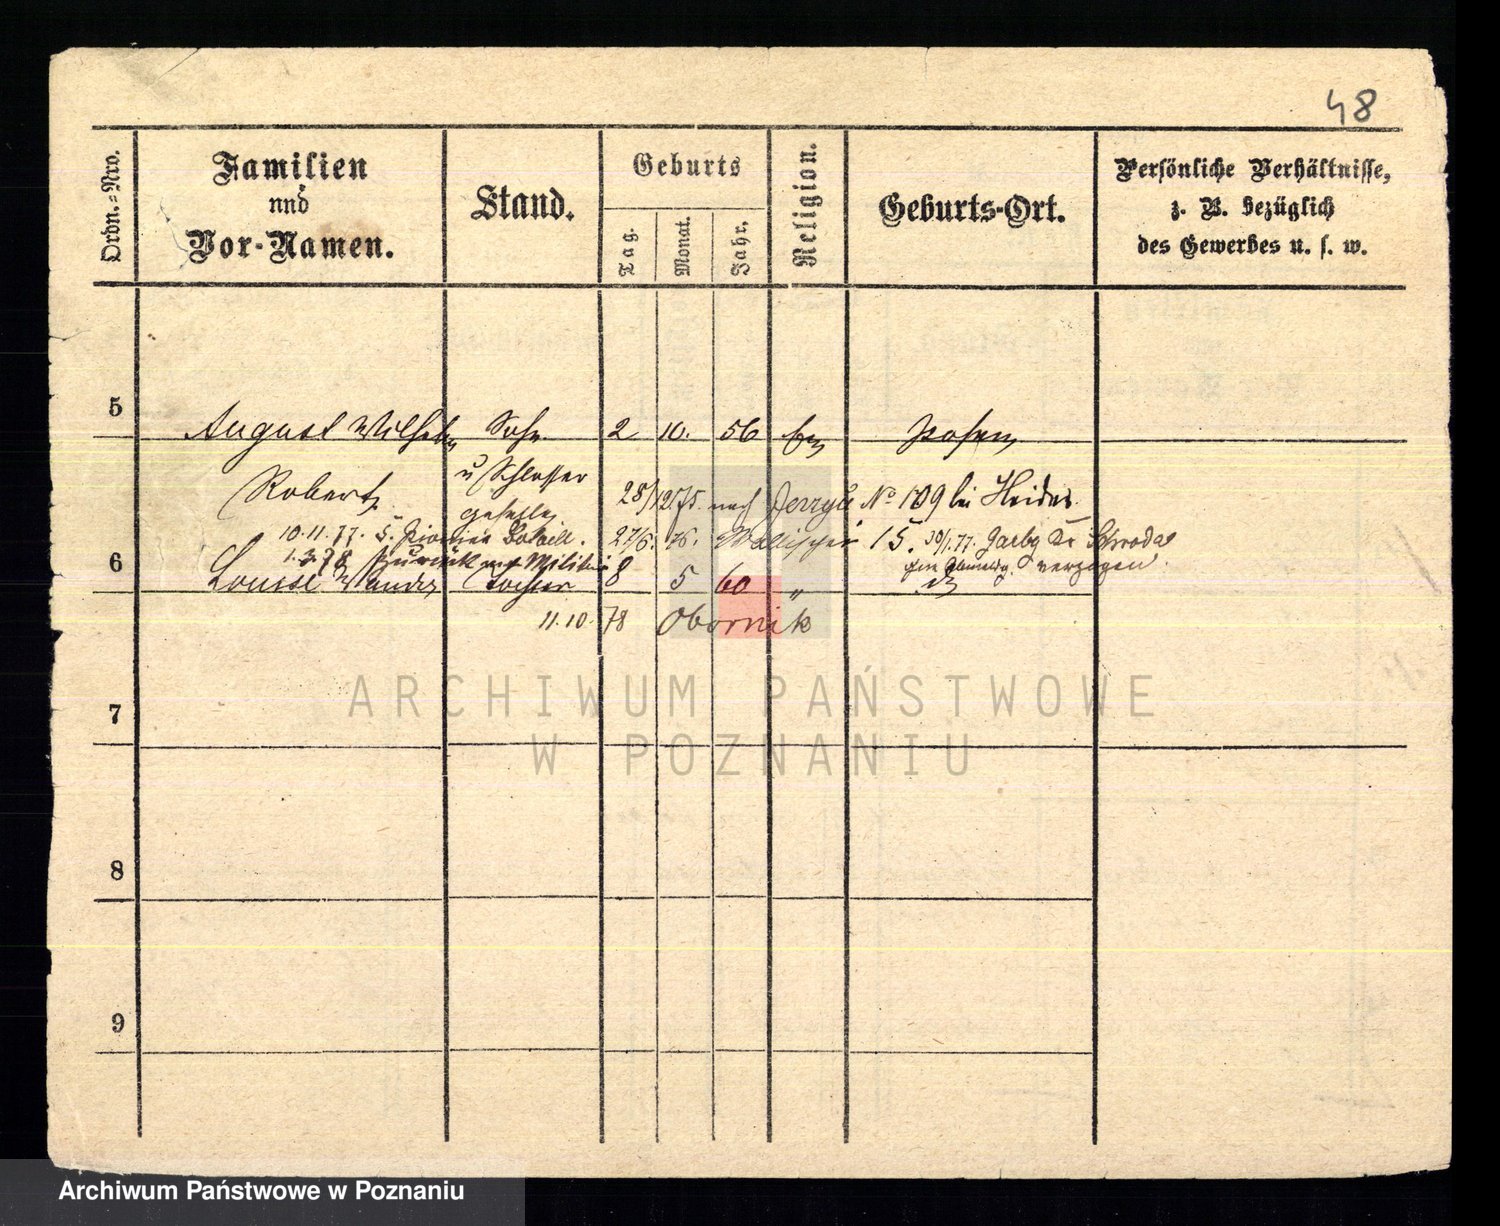 48
Ordn.-Nro.
Familien
und
Vor-Namen.
Stand.
Geburts
Tag.
Monat.
Jahr.
Religion.
Geburts-Ort.
Persönliche Verhältnisse,
z. B. bezüglich
des Gewerbes u. s. w.
5
August Wilhelm Sohn 2 10. 56 Ev Posen
Robert u Schlosser
geselle 28/12 75. nach Jerzyce No 109 bei Heider
10.11.77. 5. Pionier Bataill. 27/6. 76. Wallischei 15. 30/1.77. Garby Kr Schroda
1.3.78 zurück vom Militair verzogen.
6
Louise Wanda Tochter 8 5 60 " do
11.10.78 Obornik
7
8
9
ARCHIWUM PAŃSTWOWE
W POZNANIU
Archiwum Państwowe w Poznaniu